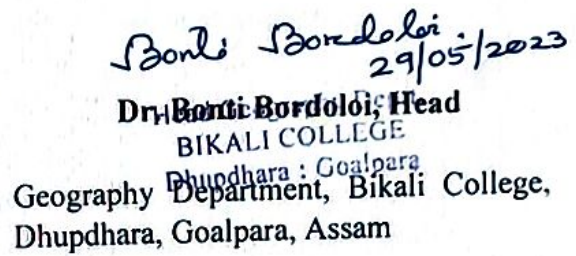 Bonti Bordoloi
29/05/2023
Dr. Bonti Bordoloi, Head
BIKALI COLLEGE
Dhupdhara : Goalpara
Geography Department, Bikali College,
Dhupdhara, Goalpara, Assam